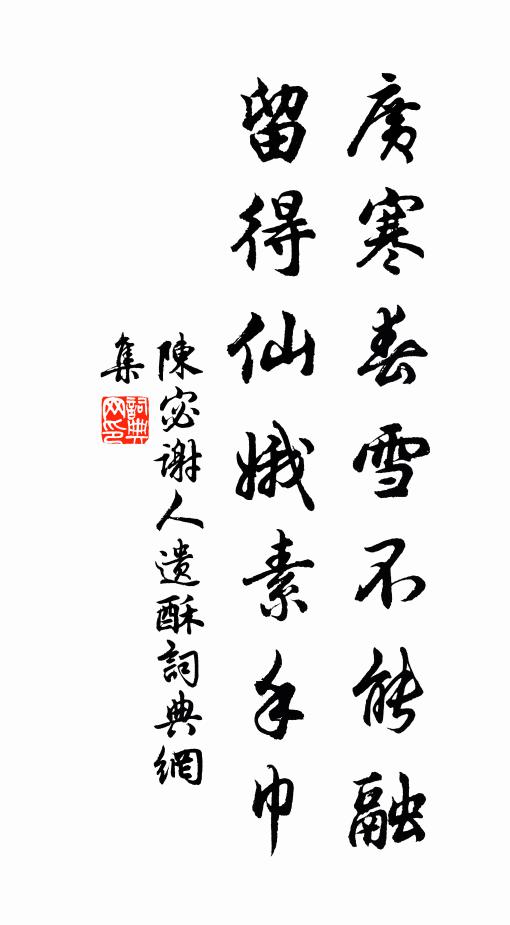 廣寒春雪不能融
留得仙娥素手巾
陳宓謝人遺酥詞典網
集
詞典網印